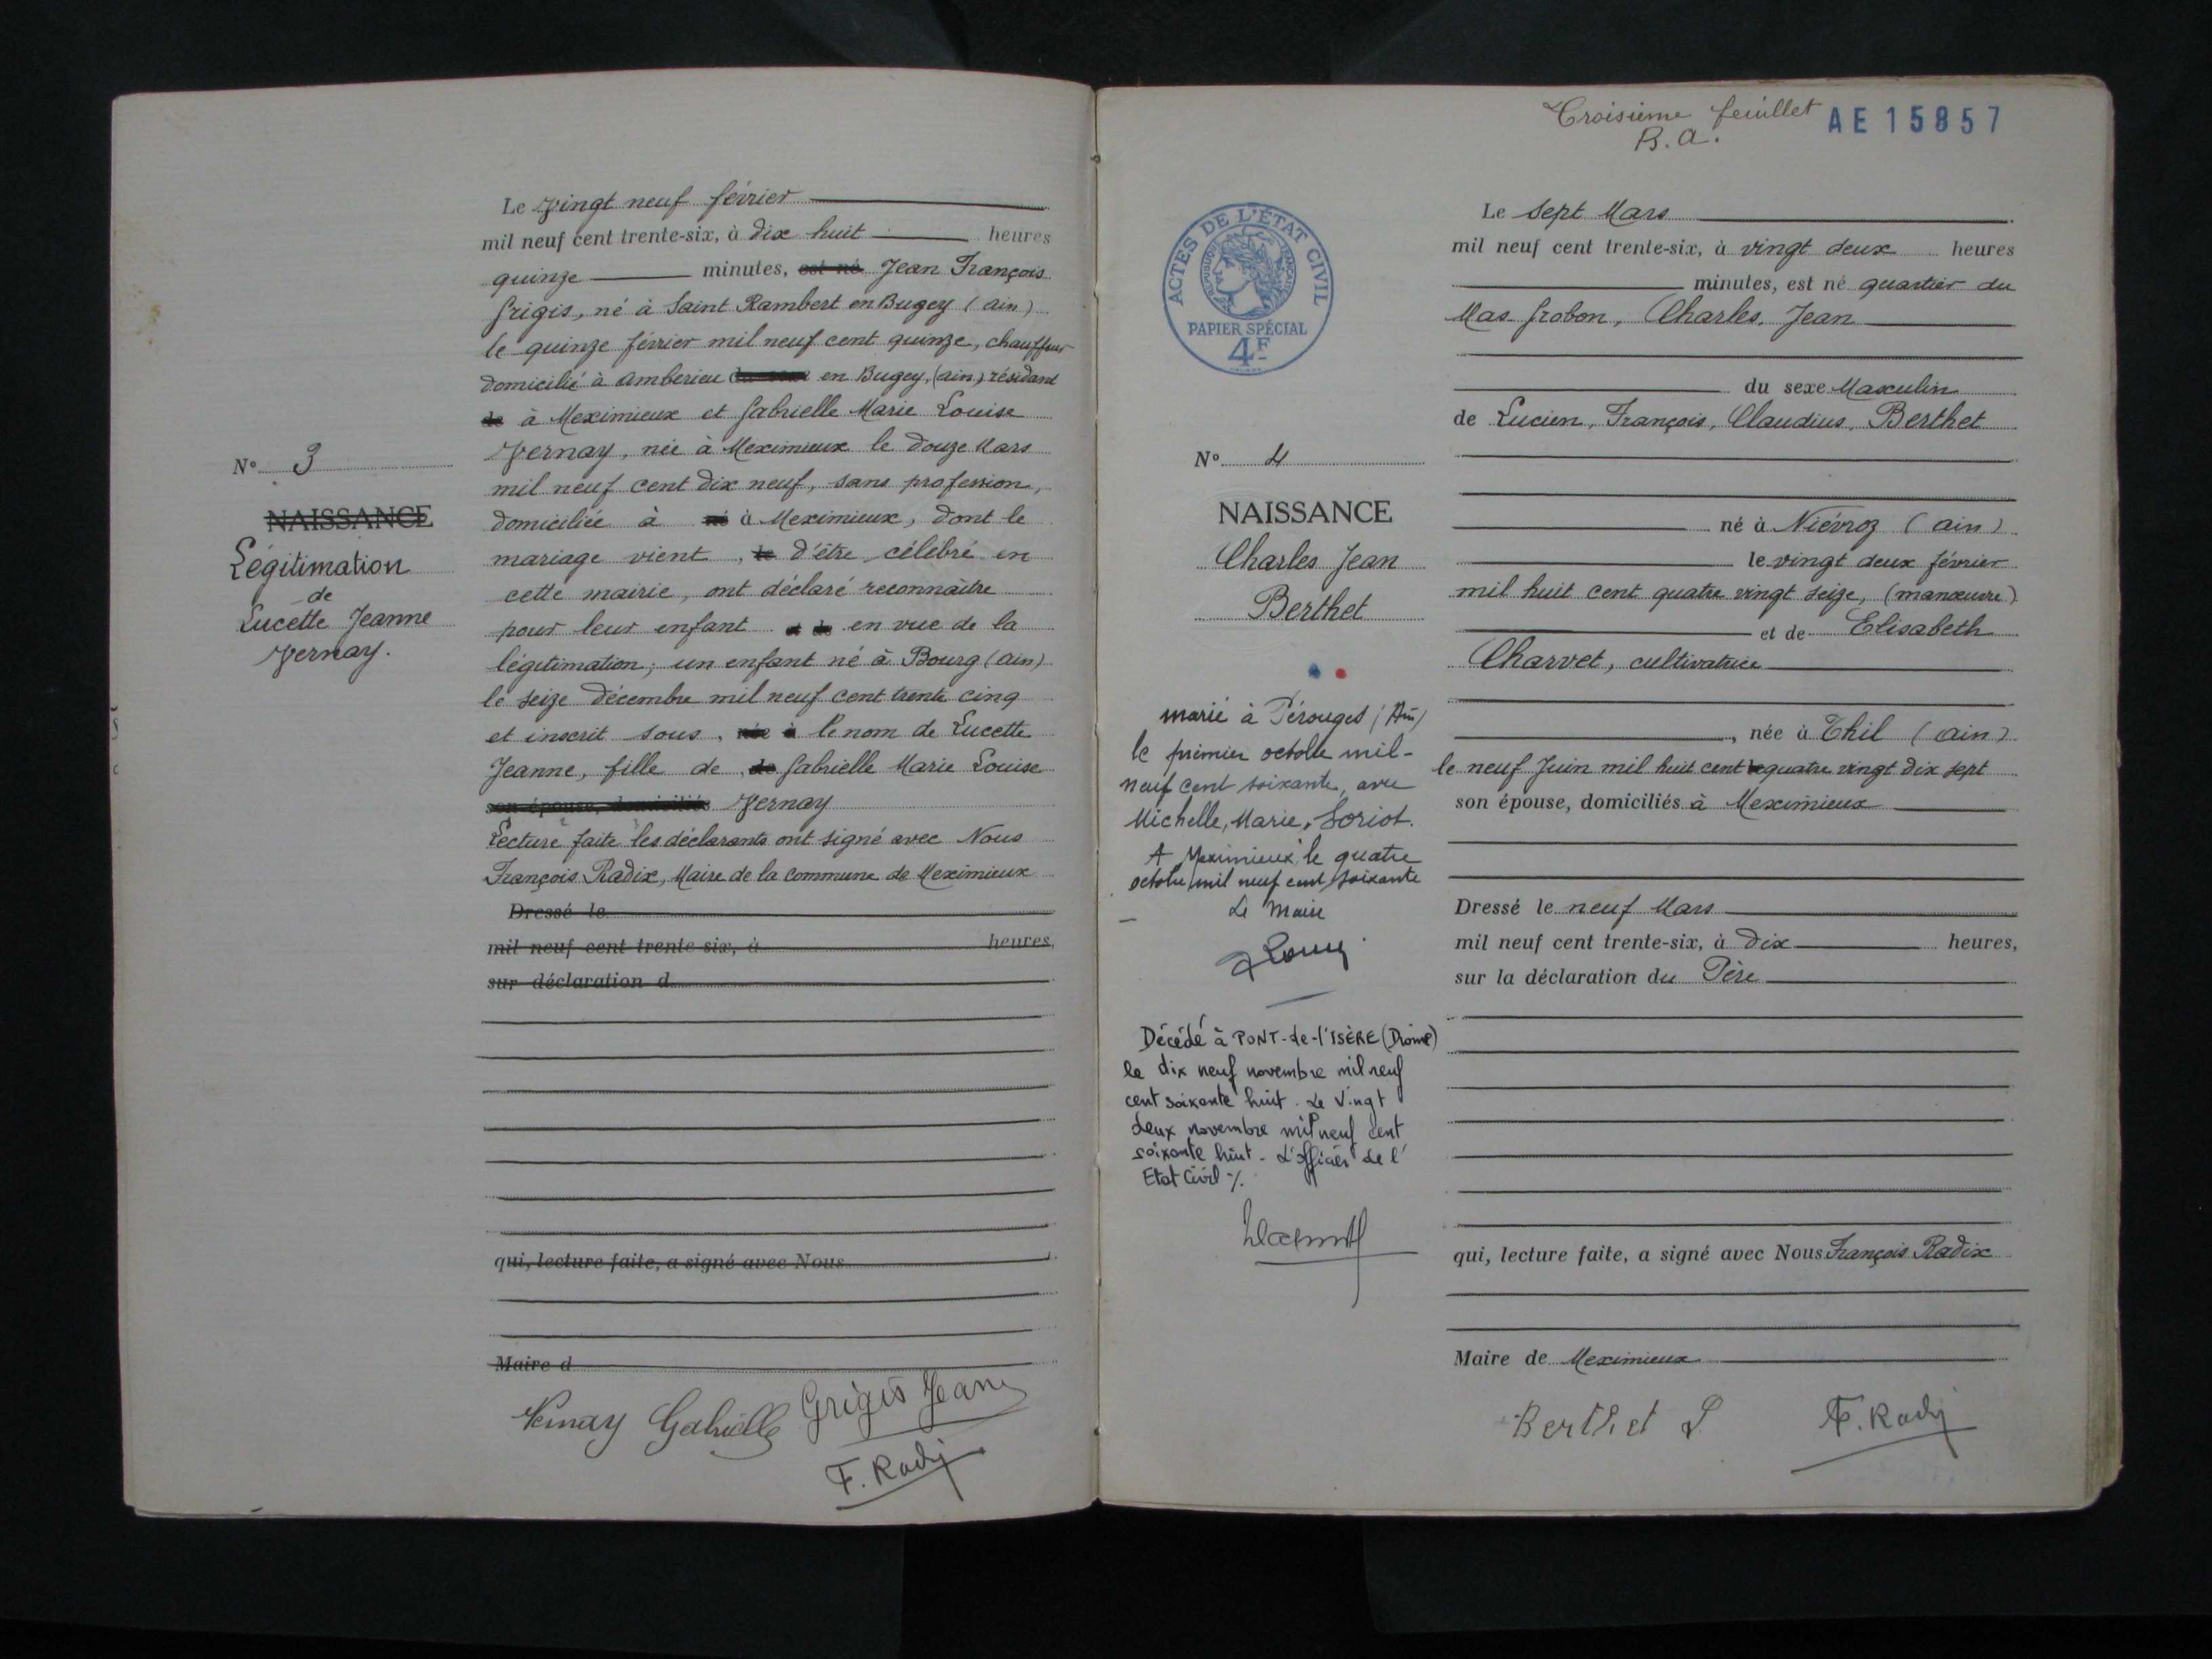 Le Vingt neuf février
mil neuf cent trente-six, à dix huit heures
quinze minutes, est né Jean François
Grigis, né à Saint Rambert en Bugey (ain)
le quinze février mil neuf cent quinze, chauffeur
domicilié à Amberieu en Bugey, (ain) résidant
à Meximieux et Gabrielle Marie Louise
Vernay, née à Meximieux le douze Mars
mil neuf cent dix neuf, sans profession,
domiciliée à à Meximieux, dont le
mariage vient, d'être célébré en
cette mairie, ont déclaré reconnaître
pour leur enfant en vue de la
légitimation; un enfant né à Bourg (ain)
le seize décembre mil neuf cent trente cinq
et inscrit sous, le nom de Lucette
Jeanne, fille de Gabrielle Marie Louise
son épouse, domiciliés Vernay
Lecture faite les déclarants ont signé avec Nous
François Radix, Maire de la commune de Meximieux
Dressé le
mil neuf cent trente-six, à heures,
sur déclaration d
qui, lecture faite, a signé avec Nous
Maire d
Vernay Gabrielle Grigis Jean
F. Radix
N° 3
NAISSANCE
Légitimation
de
Lucette Jeanne
Vernay.
Troisième feuillet AE 15857
B.A.
ACTES DE L'ÉTAT CIVIL
REPUBLIQUE FRANÇAISE
PAPIER SPÉCIAL
4F
N° 4
NAISSANCE
Charles Jean
Berthet
marié à Pérouges (Ain)
le premier octobre mil-
neuf cent soixante, avec
Michelle, Marie, Loriot.
A Meximieux le quatre
octobre mil neuf cent soixante
Le Maire
Décédé à PONT-de-l'ISÈRE (Drôme)
le dix neuf novembre mil neuf
cent soixante huit. Le Vingt
deux novembre mil neuf cent
soixante huit - L'officier de l'
Etat Civil %.
Le Sept Mars
mil neuf cent trente-six, à vingt deux heures
minutes, est né quartier du
Mas Grobon, Charles, Jean
du sexe Masculin
de Lucien, François, Claudius, Berthet
né à Niévroz (ain)
le vingt deux février
mil huit cent quatre vingt seize, (manœuvre)
et de Elisabeth
Charvet, cultivatrice
, née à Thil (ain)
le neuf Juin mil huit cent quatre vingt dix sept
son épouse, domiciliés à Meximieux
Dressé le neuf Mars
mil neuf cent trente-six, à dix heures,
sur la déclaration du Père
qui, lecture faite, a signé avec Nous François Radix
Maire de Meximieux
Berthet L F. Radix